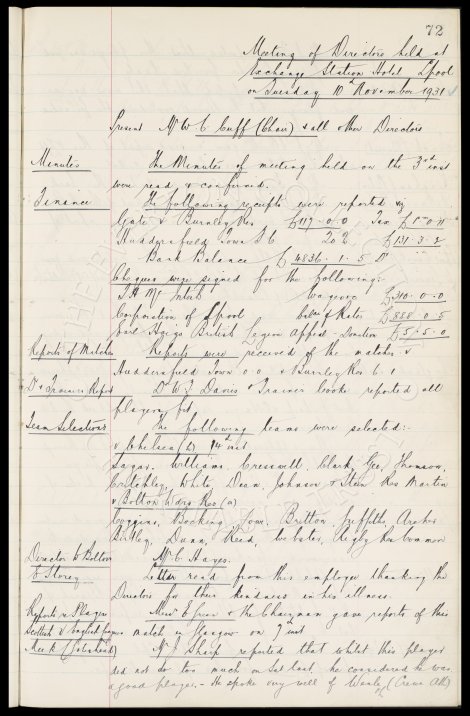 72
Meeting of Directors held at
Exchange Station Hotel L'pool
on Tuesday 10th November 1931
Present Mr W. C. Cuff (Chair) & all other Directors
Minutes The Minutes of meeting held on the 3rd inst
were read & confirmed.
Finance The following receipts were reported viz
Gate v Burnley Res £117.0.0 Tax
Huddersfield Town F C £131.3.2
Bank Balance £4836.1.5 Dr
Cheques were signed for the following:-
T. H. McIntosh Wages £310.0.0
Corporation of L'pool Rates £888.0.5
Earl Haig's British Legion Appeal - Donation £5.5.0
Reports of Matches Reports were received of the matches v
Huddersfield Town 0.0 & Burnley Res 6.1
Dr & Trainers Report Dr W J Davies & Trainer Cooke reported all
players fit
Team Selections The following teams were selected:-
v Chelsea 14th inst
Sagar. Williams. Cresswell. Clark, Gee, Thomson,
Critchley, White, Dean, Johnson & Stein. Res Martin
v Bolton Wdrs Res (a)
Coggins, Bocking, Lowe, Britton, Griffiths, Archer
Dunn, Reid, Webster, Rigby Res Common
Director to Bolton Mr C. Hayes.
Storey Letter read from this employee thanking the
Directors for their kindness in his illness.
Reports v Players Messrs Green & the Chairman gave reports of this
Scottish v English League match in Glasgow on 7th inst
Meek (Gateshead) Mr J Sharp reported that whilst this player
did not do too much on Sat last, he considered he was
a good player. - He spoke very well of (Crewe Alex)